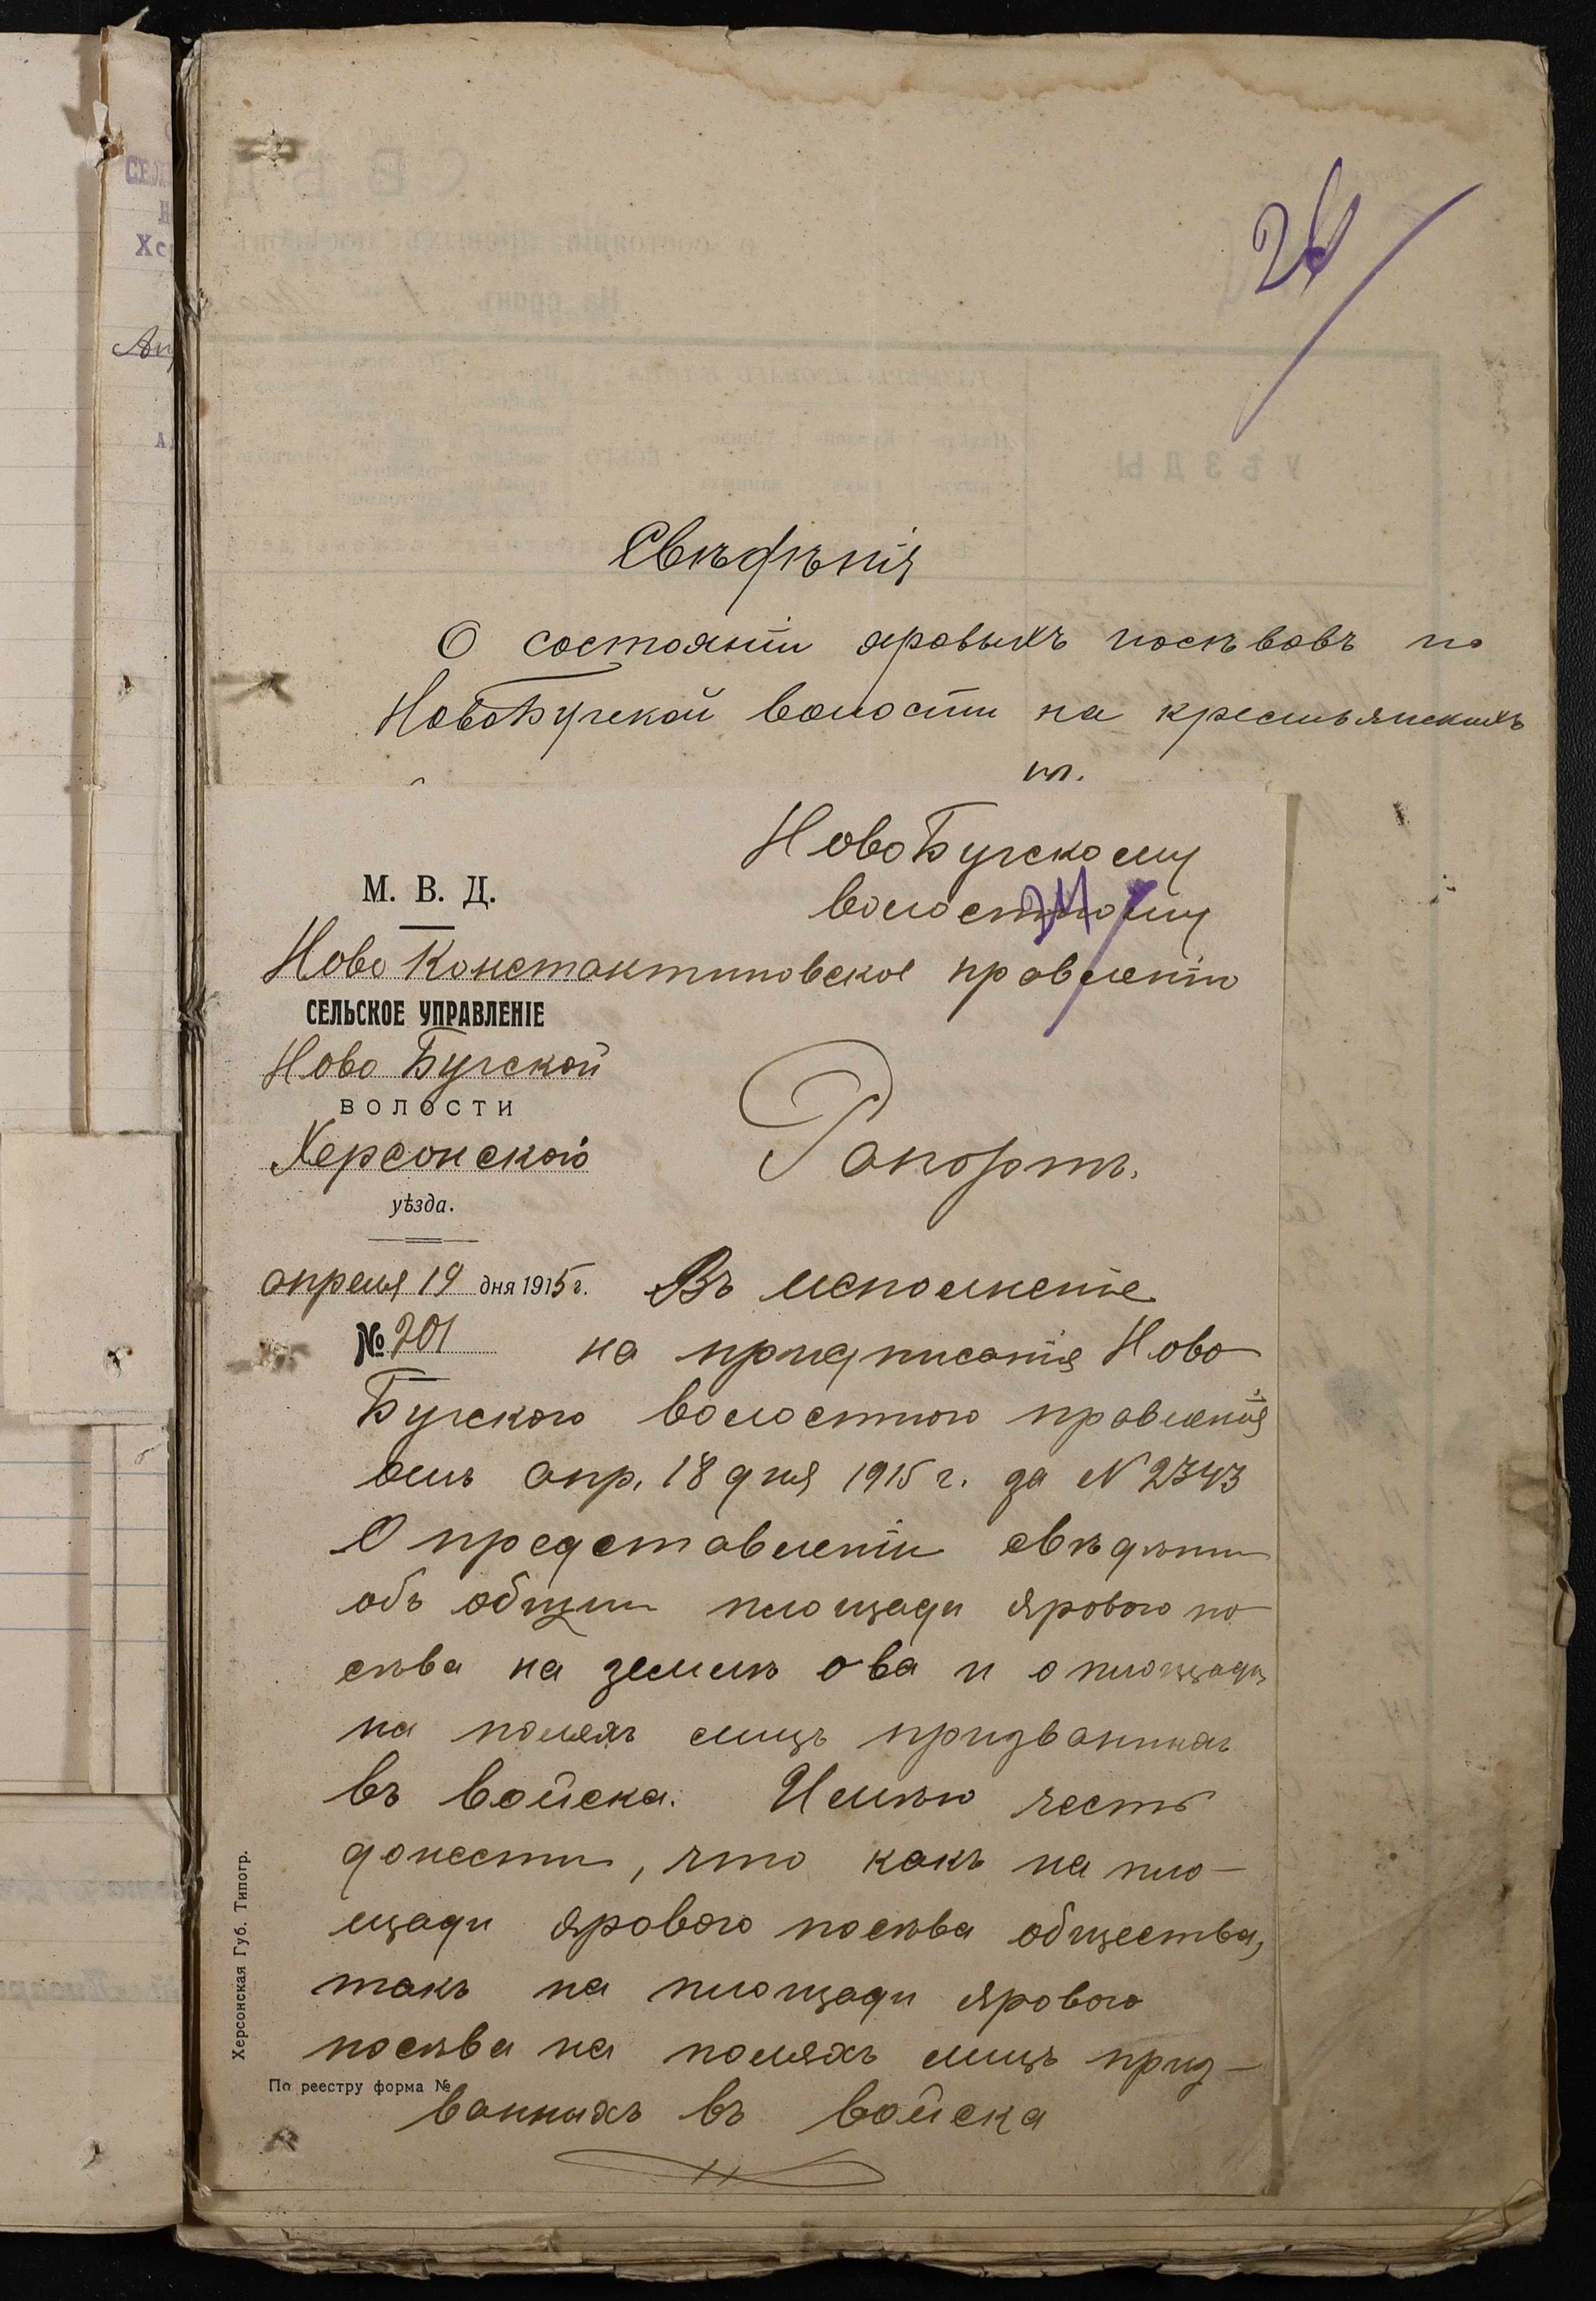 26
Свѣдѣнія
О состояніи яровыхъ посѣвовъ по
НовоБугской волости на крестьянскихъ
НовоБугскому
волостному
24
М. В. Д.
Ново Константиновское правленію
СЕЛЬСКОЕ УПРАВЛЕНІЕ
Ново Бугской
ВОЛОСТИ
Херсонского
уѣзда.
Рапортъ.
апреля 19 дня 1915 г. Въ исполненіе
№ 201 на придписанія Ново
Бугского волостного правленія
отъ апр. 18 дня 1915 г. за N 2343
О представленіи свѣдѣнии
объ общии площади ярового по
сѣва на земли о ва и о площади
на поляхъ лицъ призванныхъ
въ войска. Имѣю честь
донести, что какъ на пло-
щади ярового посѣва общества,
такъ на площади ярового
посѣва на поляхъ лицъ приз-
По реестру форма №
ванныхъ въ войска
Херсонская Губ. Типогр.